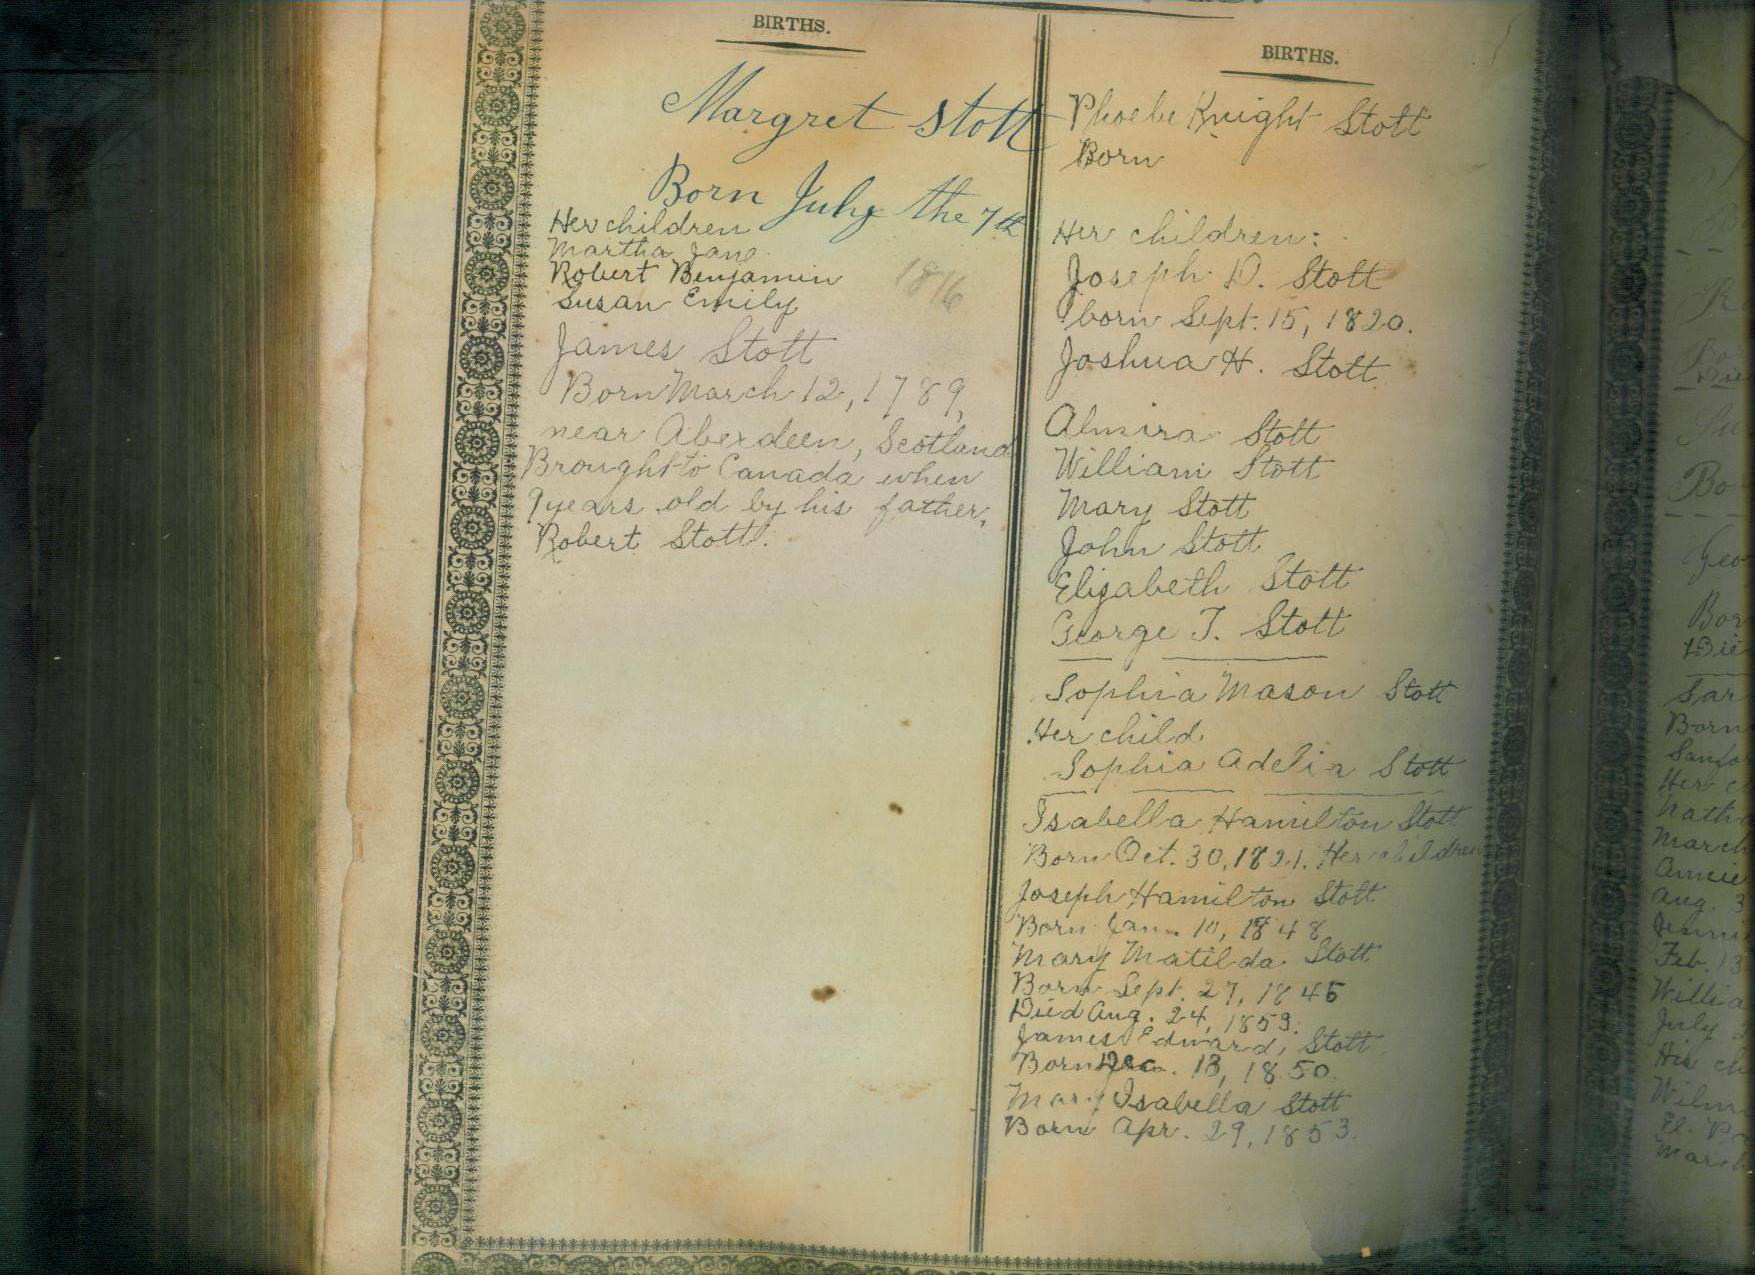 BIRTHS.
Margret Stott
Born July the 7th
Her children
Martha Jane
Robert Benjamin
1816
Susan Emily
James Stott
Born March 12, 1789,
near Aberdeen, Scotland
Brought to Canada when
9 years old by his father,
Robert Stott.
BIRTHS.
Phoebe Knight Stott
Born
Her children:
Joseph D. Stott
born Sept. 15, 1820.
Joshua H. Stott
Almira Stott
William Stott
Mary Stott
John Stott
Elizabeth Stott
George T. Stott
Sophia Mason Stott
Her child
Sophia Adelia Stott
Isabella Hamilton Stott
Born Oct. 30, 1821. Her children
Joseph Hamilton Stott
Born Jan. 10, 1848
Mary Matilda Stott
Born Sept. 27, 1845
Died Aug. 24, 1853.
James Edward, Stott
Born Dec. 13, 1850.
Mary Isabella Stott
Born Apr. 29, 1853.
Geo
Bor
Died
Sar
Born
Her c
Nath
March
Annie
Aug. 3
Jennie
Feb. 13
Willia
July 2
His ch
Wilm
March